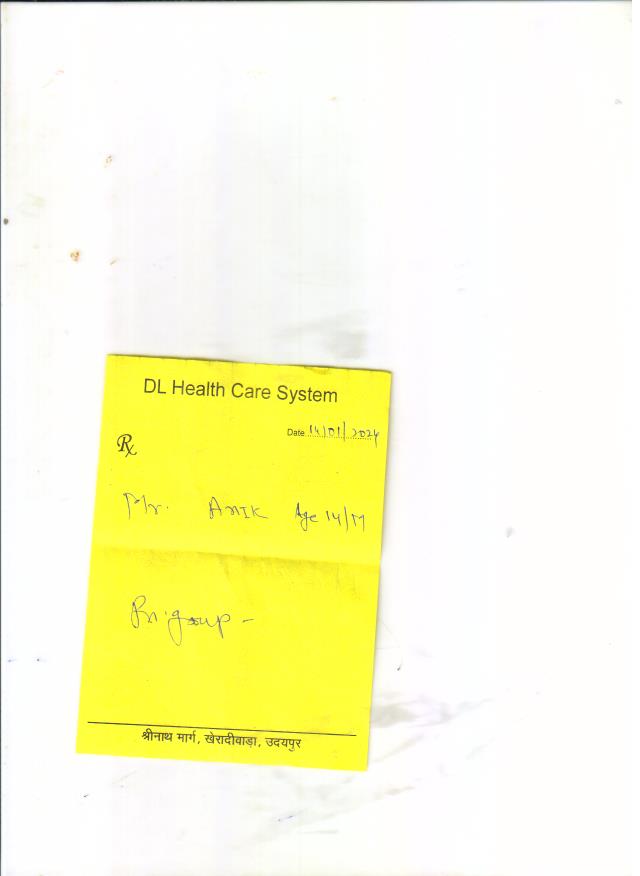 DL Health Care System
Date 14/01/2024
Rx
Mr. Anik Age 14/M
group -
श्रीनाथ मार्ग, खेरादीवाड़ा, उदयपुर